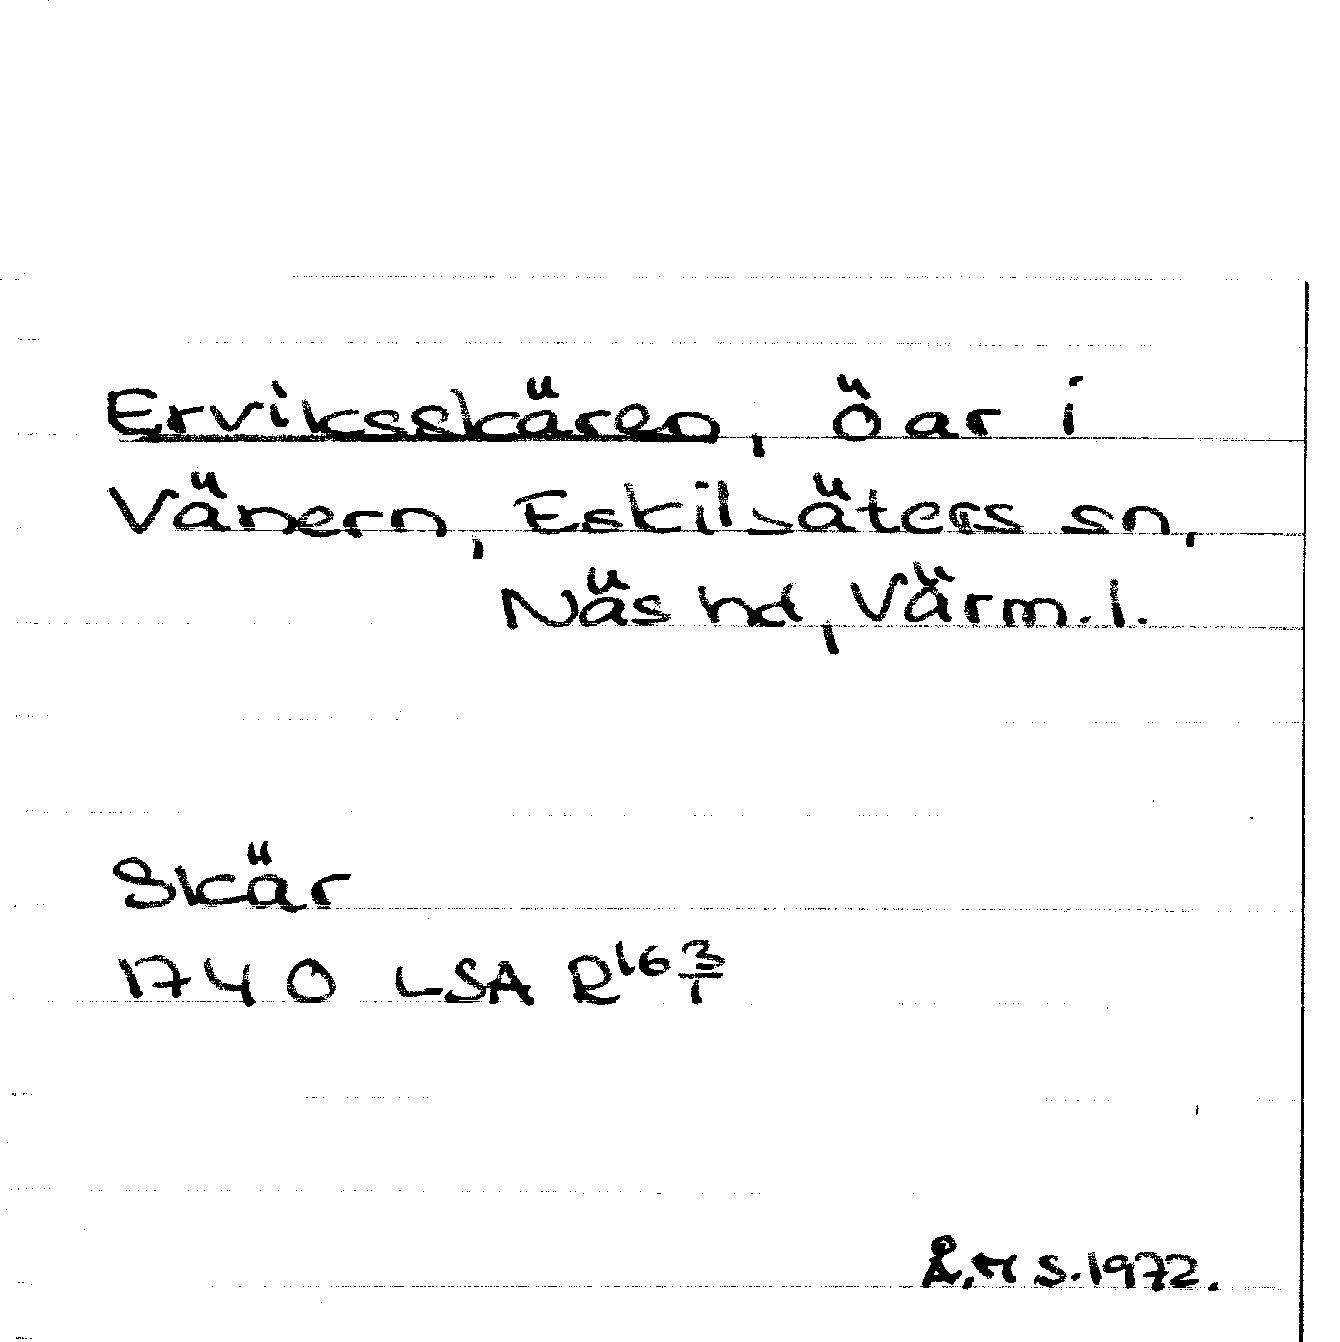 Erviksskären, öar i
Vänern, Eskilsäters sn,
Näs hd, Värm. l.
Skär
1740 LSA R16 3/1
Å.H S. 1972.